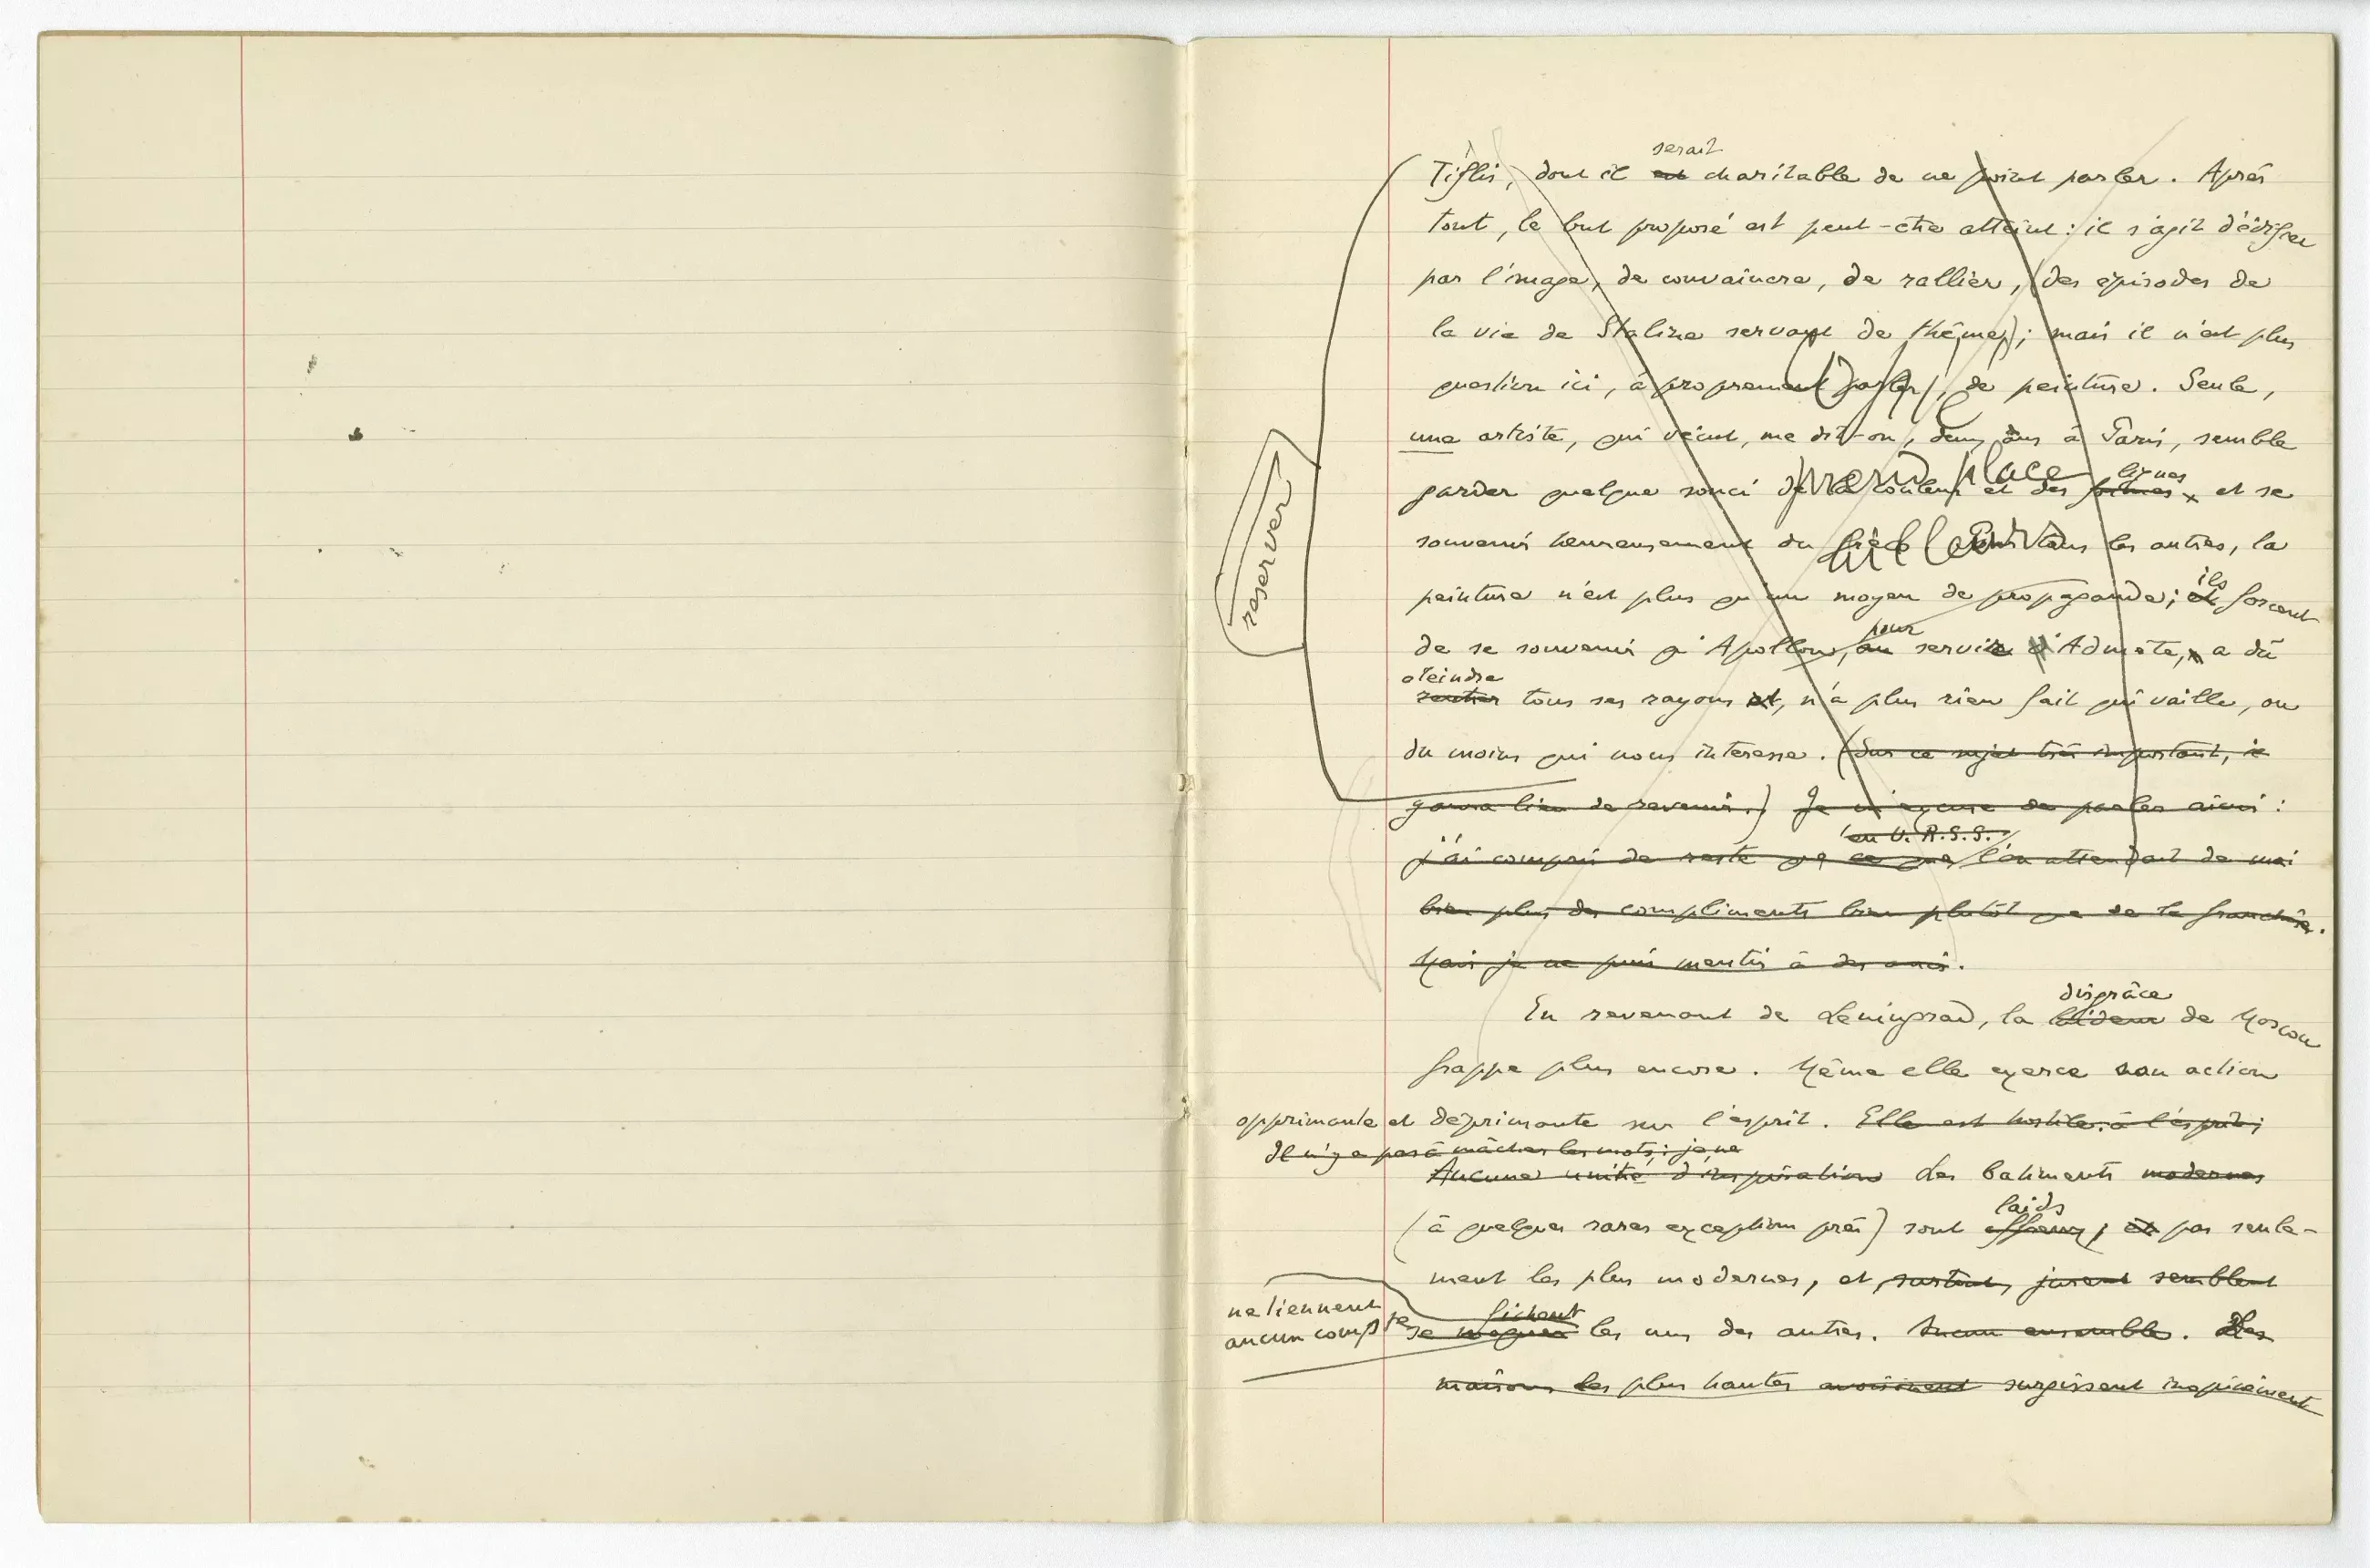 serait
Tiflis, dont il est charitable de ne point parler. Après
tout, le but proposé est peut-être atteint : il s'agit d'édifier
par l'image, de convaincre, de rallier, (des épisodes de
la vie de Staline servant de thèmes) ; mais il n'est plus
question ici, à proprement parler, de peinture. Seule,
une artiste, qui vécut, me dit-on, deux ans à Paris, semble
prend place
lignes
garder quelque souci de la couleur et des et se
souvenir heureusement du Pour tous les autres, la
ils
peinture n'est plus qu'un moyen de propagande ; et forcent
pour
de se souvenir qu'Apollon, au service d'Admète, a dû
éteindre
tous ses rayons et, n'a plus rien fait qui vaille, ou
du moins qui nous intéresse. (Sur ce sujet très important, il
y aura lieu de revenir.) Je m'excuse de parler ainsi :
en U.R.S.S.
j'ai compris de reste que ce que l'on attendait de moi
bien plus des compliments bien plutôt que de la franchise.
Mais je ne puis mentir à des amis.
disgrâce
En revenant de Leningrad, la laideur de Moscou
frappe plus encore. Même elle exerce son action
opprimante et déprimante sur l'esprit. Elle est hostile à l'esprit ;
Il n'y a pas à mâcher les mots ; je ne
Aucune unité d'inspiration Les batiments modernes
laids
(à quelques rares exceptions près) sont affreux ; et pas seule-
ment les plus modernes, et surtout, jurent semblent
ne tiennent
aucun compte
fichent
se moquer les uns des autres. Aucun ensemble. Des
maisons les plus hautes avoisinent surgissent inopinément
reserver